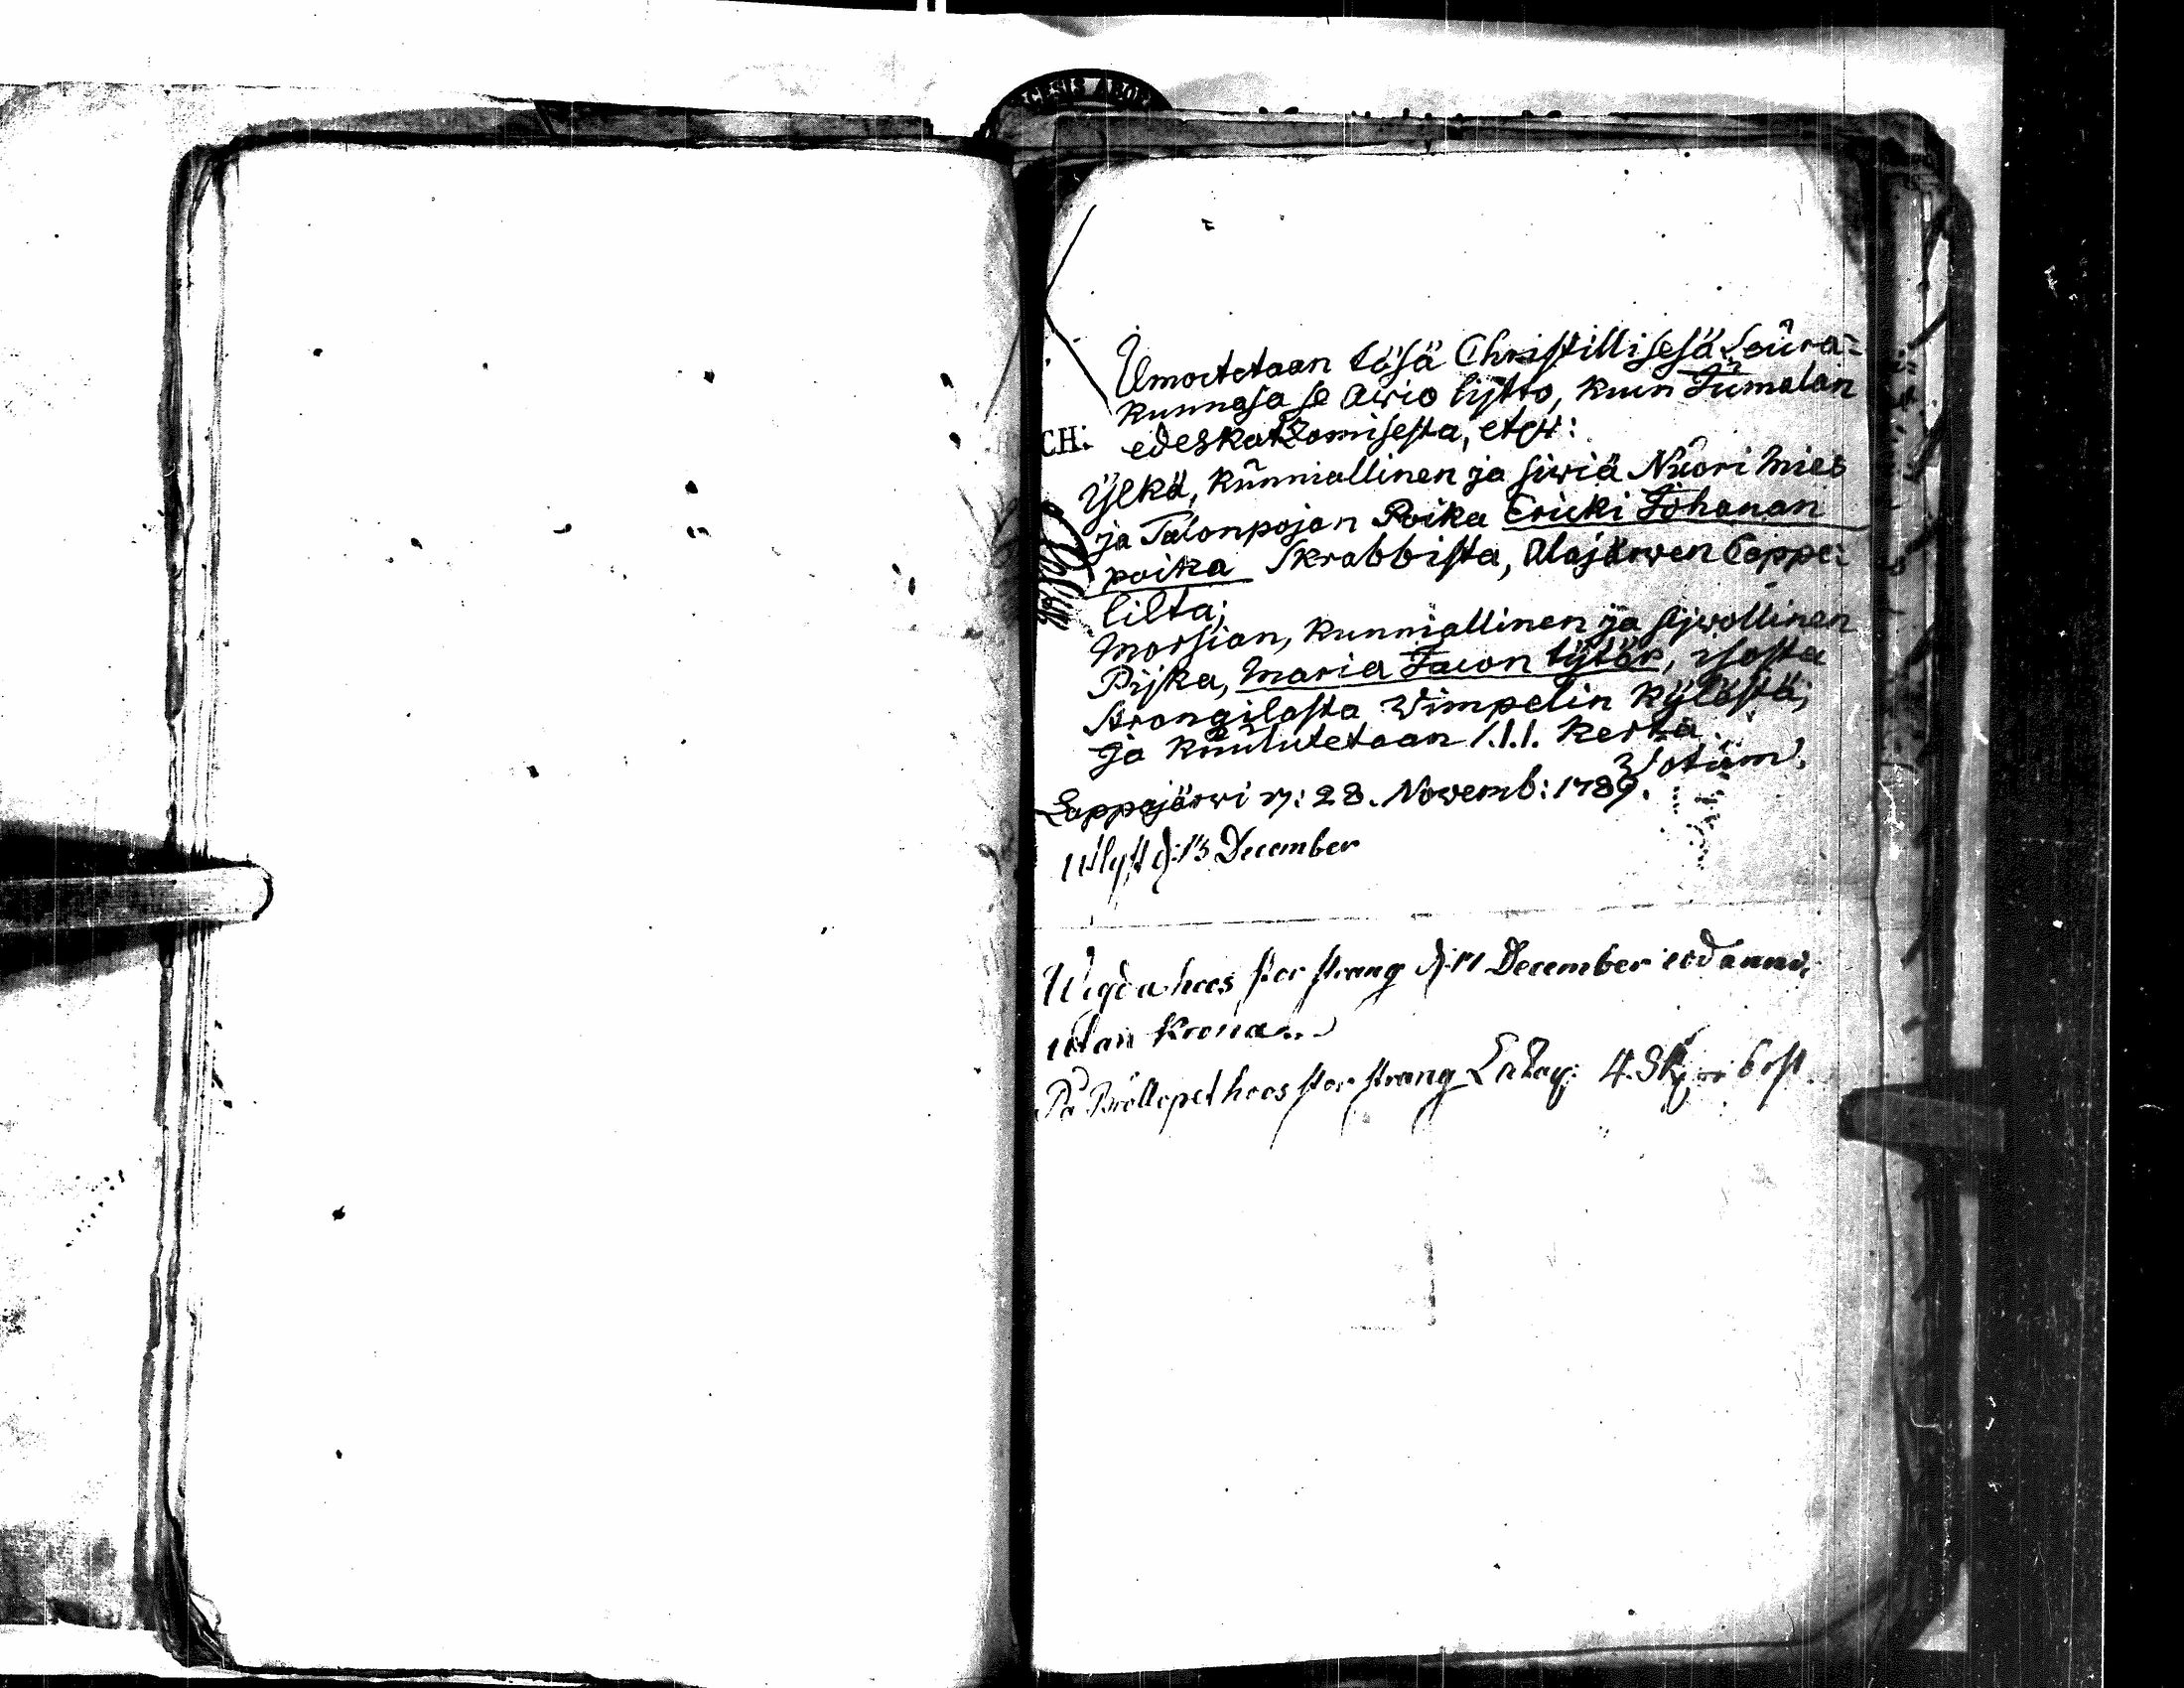 CESIS ABOE
Ilmoitetaan täsä Christillisesä Seüra-
kunnasa se Awio lijtto, kuin Jümalan
CH: edeskatzomisesta, etc:
Ÿlkä, künniallinen ja siwiä Nuori Mies
ja Talonpojan Poika Ericki Johanan
poika Skrabbista, Alajärwen Cappe:
lilta;
Morsian, kunniallinen ja sijwollinen
Pijka, Maria Jacon tÿtär, isosta
Strangilasta Wimpelin kÿlästä;
Ja kuulutetaan 1.1.1. kerta.
Wotum.
Lappajärwi d: 28. Novemb: 1789.
utlyst d: 13 December
Wigda hoos stor strang d: 17 December eod anno,
utan Krona
På Bröllopet hoos stor strang 4. Sk 6 rst.